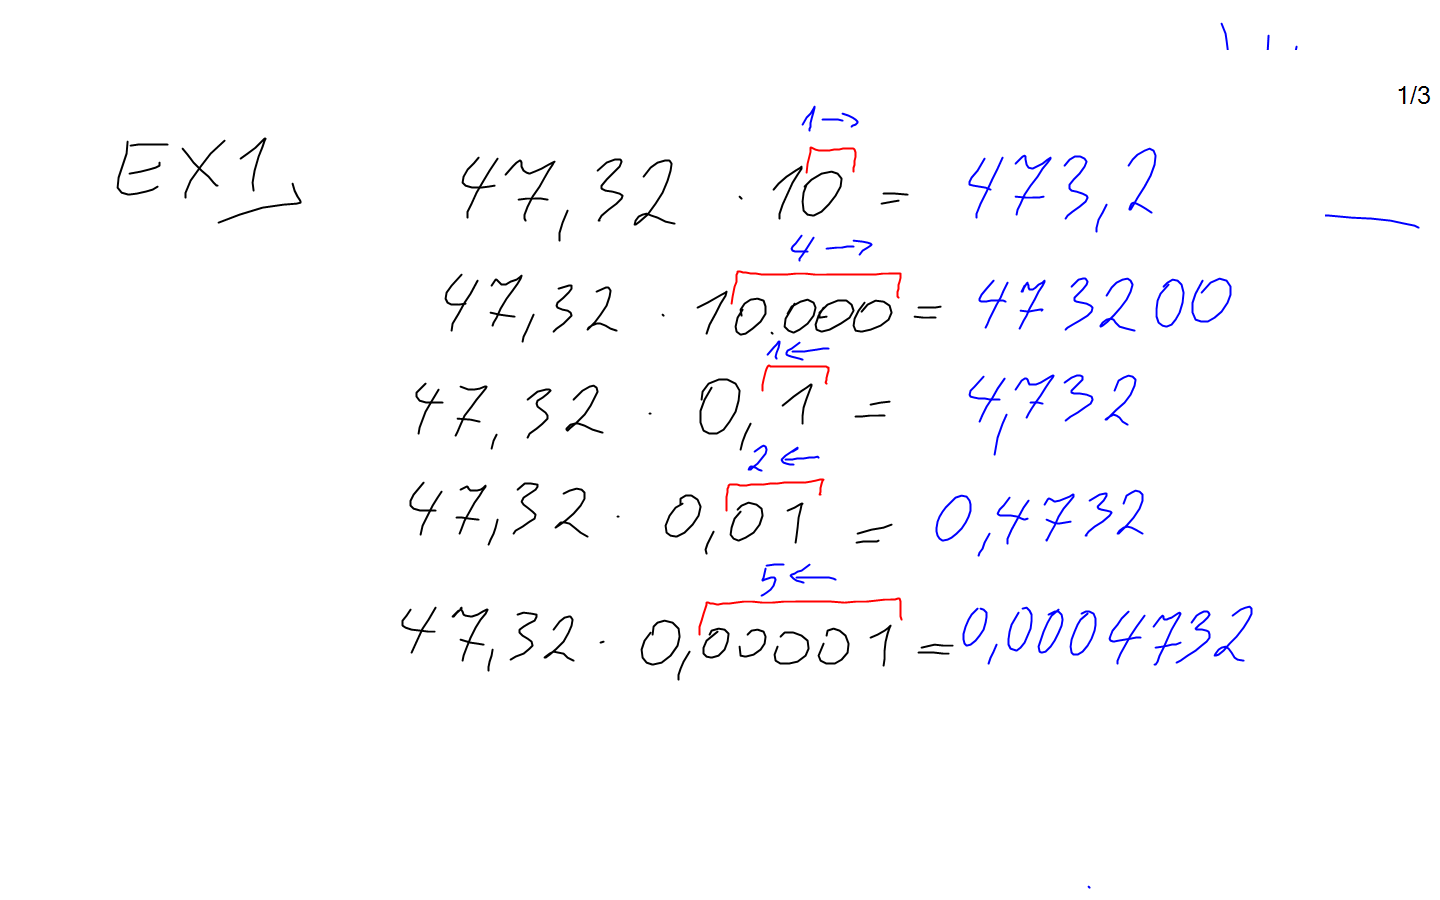 1/3
1→
EX1, 47,32 · 10 = 473,2
4→
47,32 · 10.000 = 473200
1←
47,32 · 0,1 = 4,732
2←
47,32 · 0,01 = 0,4732
5←
47,32 · 0,00001 = 0,0004732